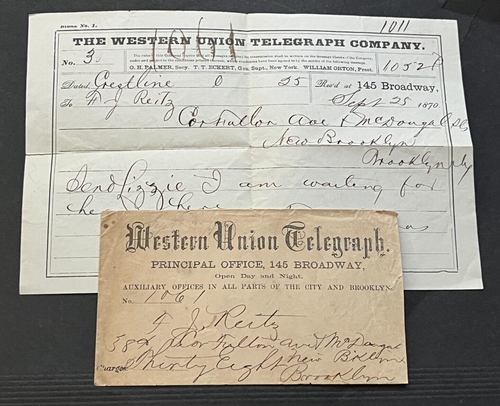 1011
THE WESTERN UNION TELEGRAPH COMPANY.
1061
O. H. PALMER, Secy. T. T. ECKERT, Gen. Supt., New York. WILLIAM ORTON, Prest.
No. 3
Dated Crestline O 25 Rec'd at 145 Broadway,
Sept 25 1870.
To F J Reitz
Cor Fulton Ave & McDougal
New Brooklyn
Brooklyn Ny
Send Lizzie I am waiting for
her here
Western Union Telegraph.
PRINCIPAL OFFICE, 145 BROADWAY,
Open Day and Night.
AUXILIARY OFFICES IN ALL PARTS OF THE CITY AND BROOKLYN.
No. 1061
F J. Reitz
Cor Fulton Ave & McDougal
Thirty Eight New
Brooklyn